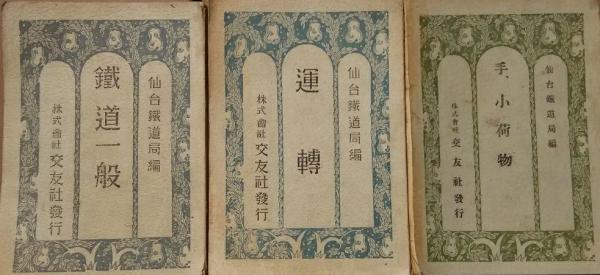 仙台鐵道局編
鐵道一般
株式會社 交友社發行
仙台鐵道局編
運轉
株式會社 交友社發行
仙台鐵道局編
手、小荷物
株式會社 交友社發行